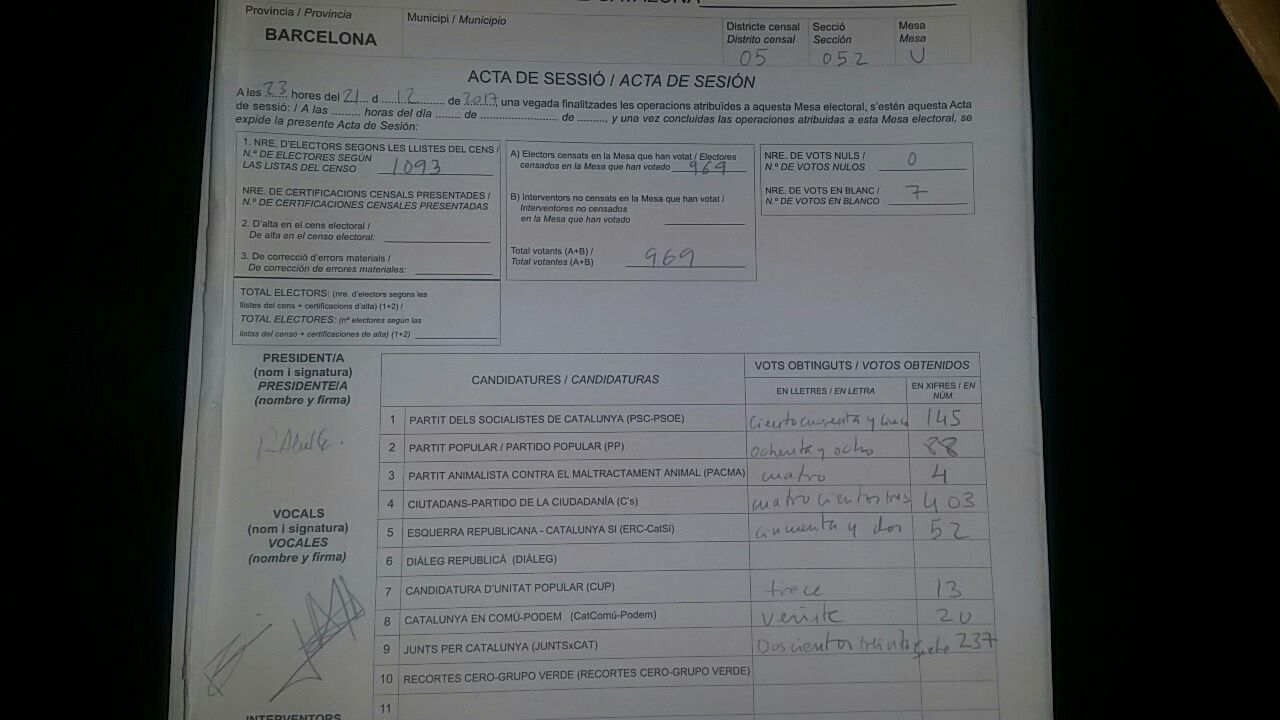 Província / Provincia
BARCELONA
Municipi / Municipio
Districte censal
Distrito censal
05
Secció
Sección
052
Mesa
Mesa
U
ACTA DE SESSIÓ / ACTA DE SESIÓN
A les 23 hores del 21 d 12 de 2017 una vegada finalitzades les operacions atribuïdes a aquesta Mesa electoral, s'estén aquesta Acta
de sessió: / A las ......... horas del día ........ de ........................ de ........., y una vez concluidas las operaciones atribuidas a esta Mesa electoral, se
expide la presente Acta de Sesión:
1. NRE. D'ELECTORS SEGONS LES LLISTES DEL CENS /
N.º DE ELECTORES SEGÚN
LAS LISTAS DEL CENSO 1093
NRE. DE CERTIFICACIONS CENSALS PRESENTADES /
N.º DE CERTIFICACIONES CENSALES PRESENTADAS
2. D'alta en el cens electoral /
De alta en el censo electoral:
3. De correcció d'errors materials /
De corrección de errores materiales:
TOTAL ELECTORS: (nre. d'electors segons les
llistes del cens + certificacions d'alta) (1+2) /
TOTAL ELECTORES: (nº electores según las
listas del censo + certificaciones de alta) (1+2)
A) Electors censats en la Mesa que han votat / Electores
censados en la Mesa que han votado 969
B) Interventors no censats en la Mesa que han votat /
Interventores no censados
en la Mesa que han votado
Total votants (A+B) /
Total votantes (A+B) 969
NRE. DE VOTS NULS /
N.º DE VOTOS NULOS 0
NRE. DE VOTS EN BLANC /
N.º DE VOTOS EN BLANCO 7
PRESIDENT/A
(nom i signatura)
PRESIDENTE/A
(nombre y firma)
VOCALS
(nom i signatura)
VOCALES
(nombre y firma)
INTERVENTORS
CANDIDATURES / CANDIDATURAS
VOTS OBTINGUTS / VOTOS OBTENIDOS
EN LLETRES / EN LETRA
EN XIFRES / EN
NÚM.
1 PARTIT DELS SOCIALISTES DE CATALUNYA (PSC-PSOE) 145
2 PARTIT POPULAR / PARTIDO POPULAR (PP) ochenta y ocho 88
3 PARTIT ANIMALISTA CONTRA EL MALTRACTAMENT ANIMAL (PACMA) cuatro 4
4 CIUTADANS-PARTIDO DE LA CIUDADANÍA (C's) cuatrocientos tres 403
5 ESQUERRA REPUBLICANA - CATALUNYA SI (ERC-CatSí) cincuenta y dos 52
6 DIÀLEG REPUBLICÀ (DIÀLEG)
7 CANDIDATURA D'UNITAT POPULAR (CUP) trece 13
8 CATALUNYA EN COMÚ-PODEM (CatComú-Podem) veinte 20
9 JUNTS PER CATALUNYA (JUNTSxCAT) Doscientos treinta siete 237
10 RECORTES CERO-GRUPO VERDE (RECORTES CERO-GRUPO VERDE)
11